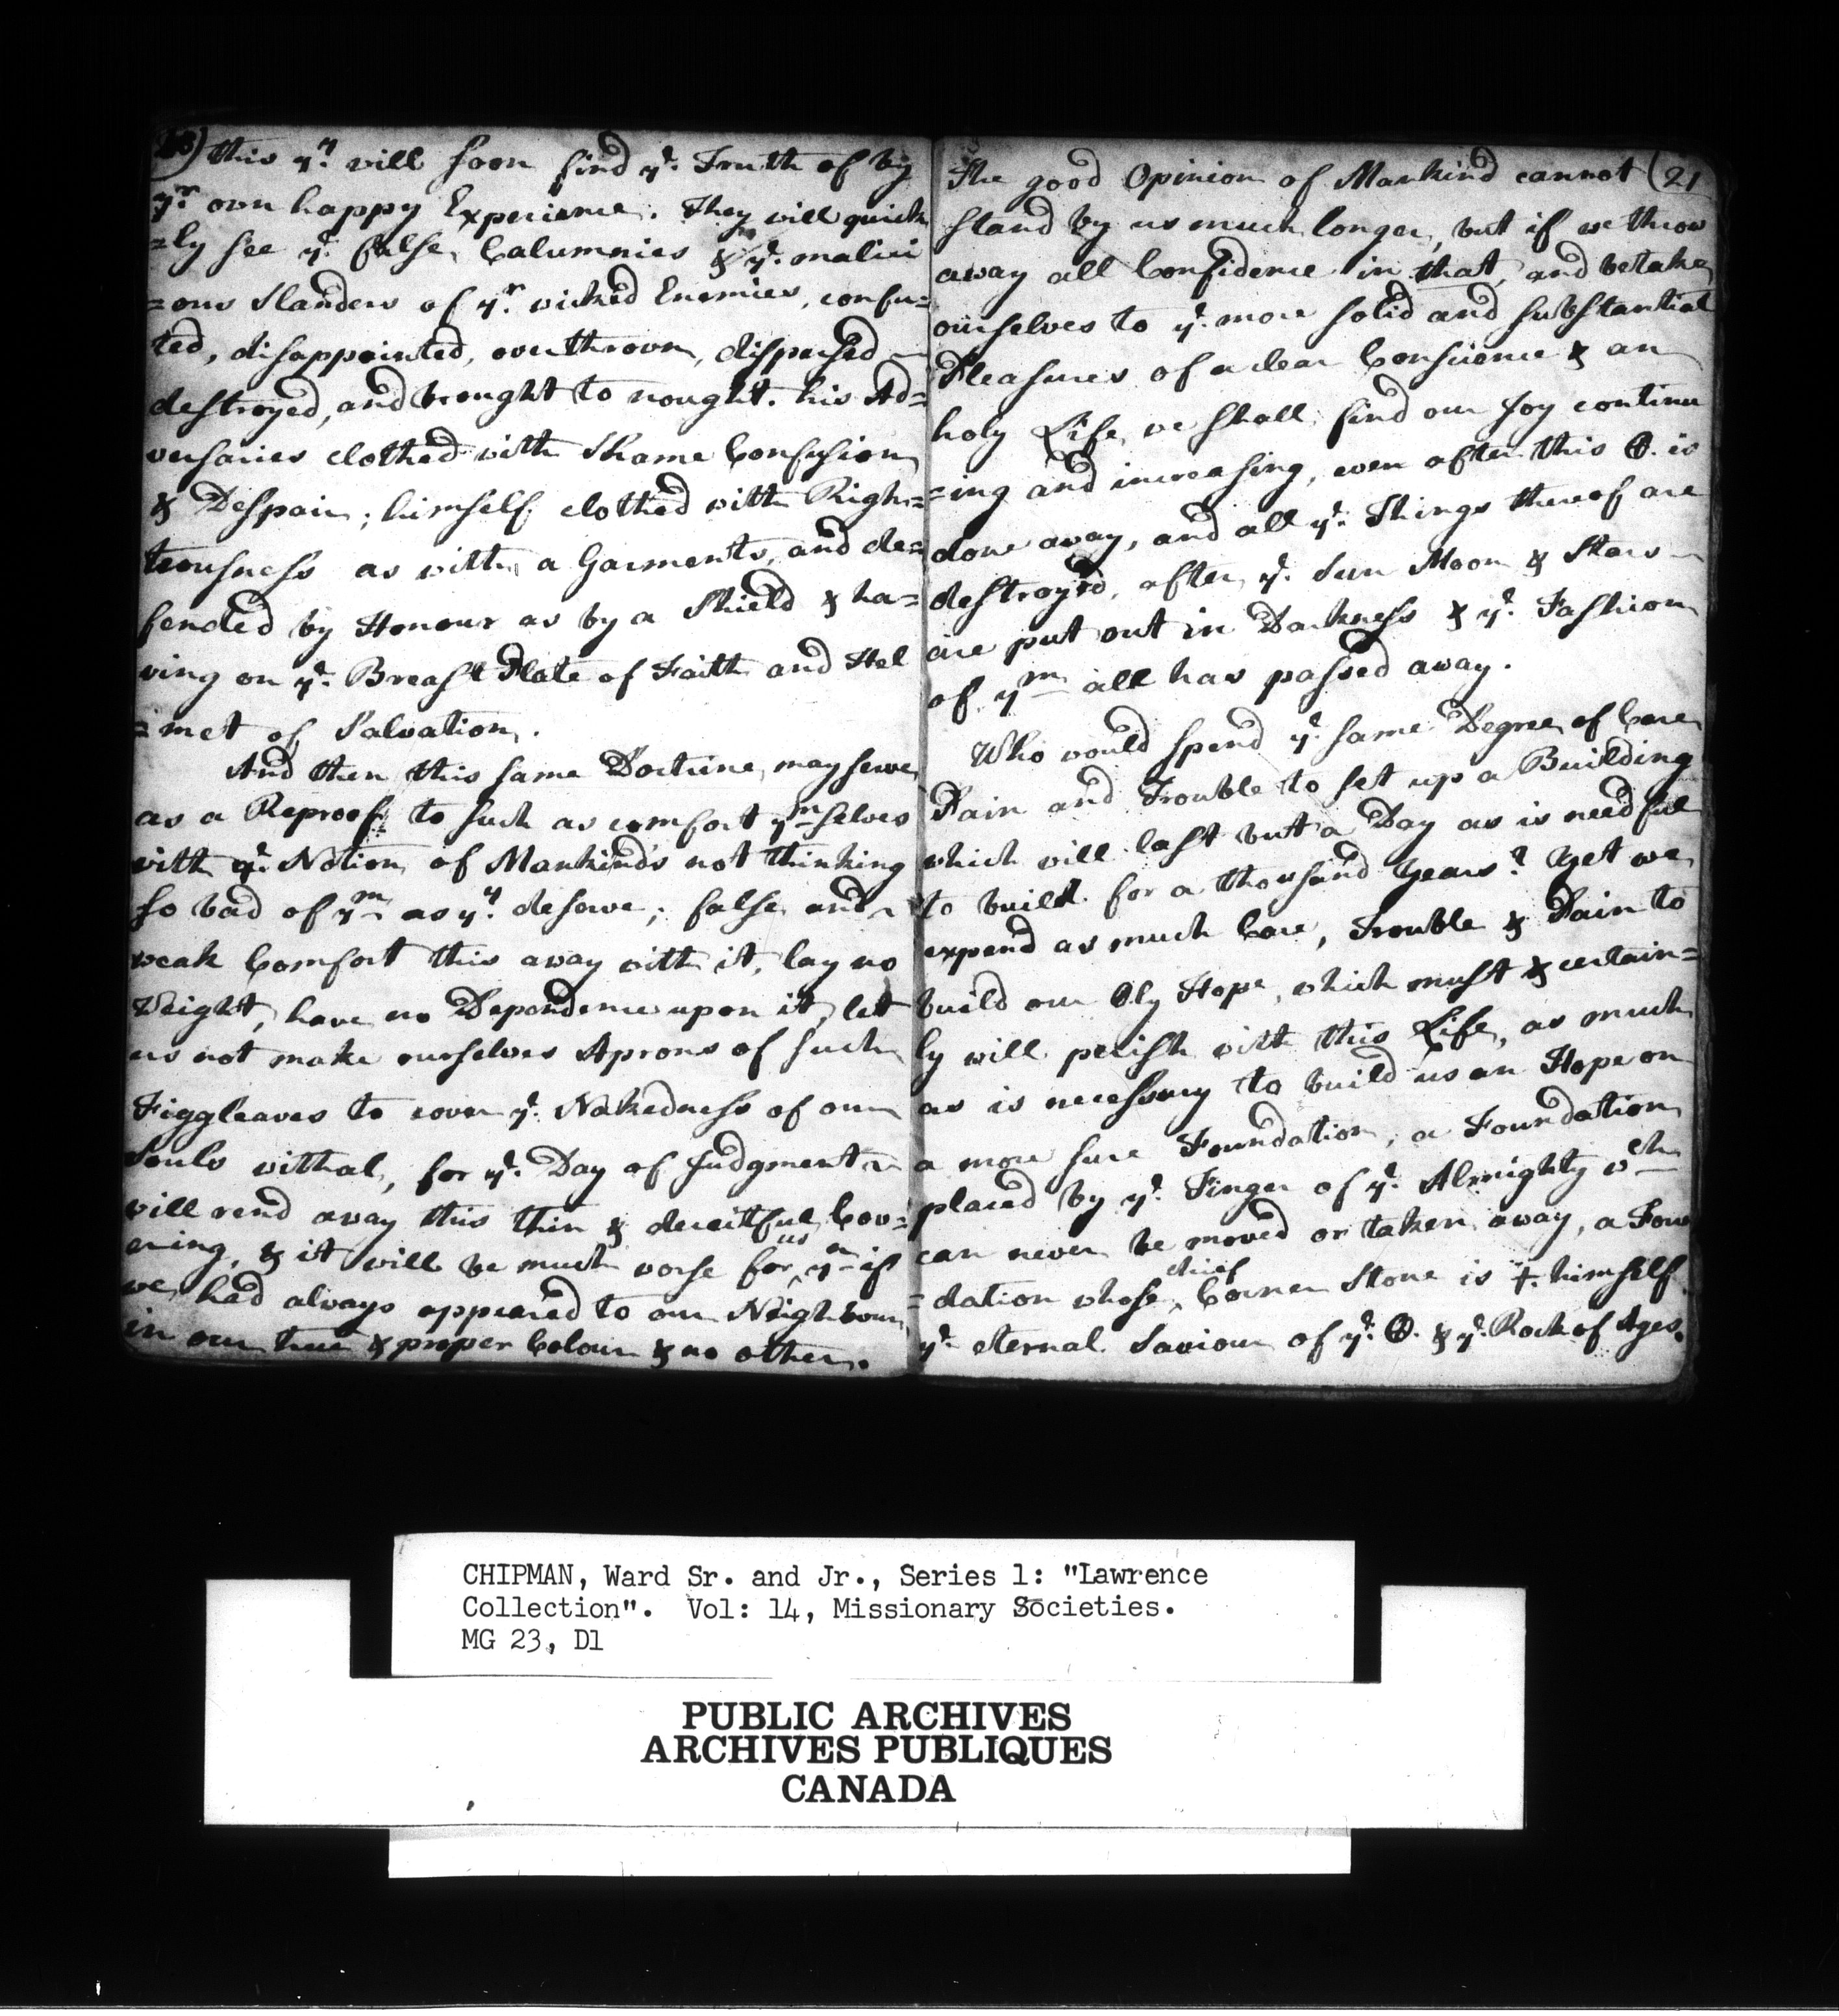 20) this yy. will soon find ye. Truth of by
yr own happy Experience. They will quick
=ly see ye. false, Calumnies & ye. malici
=ous Slanders of yr. wicked Enemies, confu=
ted, disappointed, overthrown, dispersed
destroyed, and brought to nought. his Ad=
versaries clothed with Shame Confusion
& Despair; himself clothed with Righ=
teousness as with a Garments, and de=
fended by Honour as by a Shield & ha=
ving on ye. Breast Plate of Faith and Hel
=met of Salvation.
And then this same Doctrine, may serve
as a Reproof to such as comfort ymselves
with ye. Notion of Mankind's not thinking
so bad of ym as yy. deserve; false and
weak Comfort this away with it, lay no
Weight, have no Dependence upon it, let
us not make ourselves Aprons of such
Figgleaves to cover ye. Nakedness of our
Souls withal, for ye. Day of Judgment
will rend away this thin & deceitful Cov=
ering, & it will be much worse for us yn if
we had always appeared to our Neighbour
in our true & proper Colour & no other.
The good Opinion of Mankind cannot (21
stand by us much longer, but if we throw
away all Confidence in that, and betake
ourselves to ye. more solid and substantial
Pleasures of a clear Conscience & an
holy Life, we shall find our Joy continu
=ing and increasing, even after this ⊕. is
done away, and all ye. Things thereof are
destroy'd, after ye. Sun Moon & Stars
are put out in Darkness & ye. Fashion
of ym all has passed away.
Who would spend ye. same Degree of Care
Pain and Trouble to set up a Building
which will last but a Day as is needful
to build for a thousand Years? Yet we
expend as much Care, Trouble & Pain to
build our ⊕ly Hope, which must & certain=
ly will perish with this Life, as much
as is necessary to build us an Hope on
a more sure Foundation, a Foundation
placed by ye. Finger of ye. Almighty wch
can never be moved or taken away, a Foun
=dation whose chief Corner Stone is ☨. himself
ye. eternal Saviour of ye. ⊕. & ye. Rock of Ages.
CHIPMAN, Ward Sr. and Jr., Series 1: "Lawrence
Collection". Vol: 14, Missionary Societies.
MG 23, D1
PUBLIC ARCHIVES
ARCHIVES PUBLIQUES
CANADA